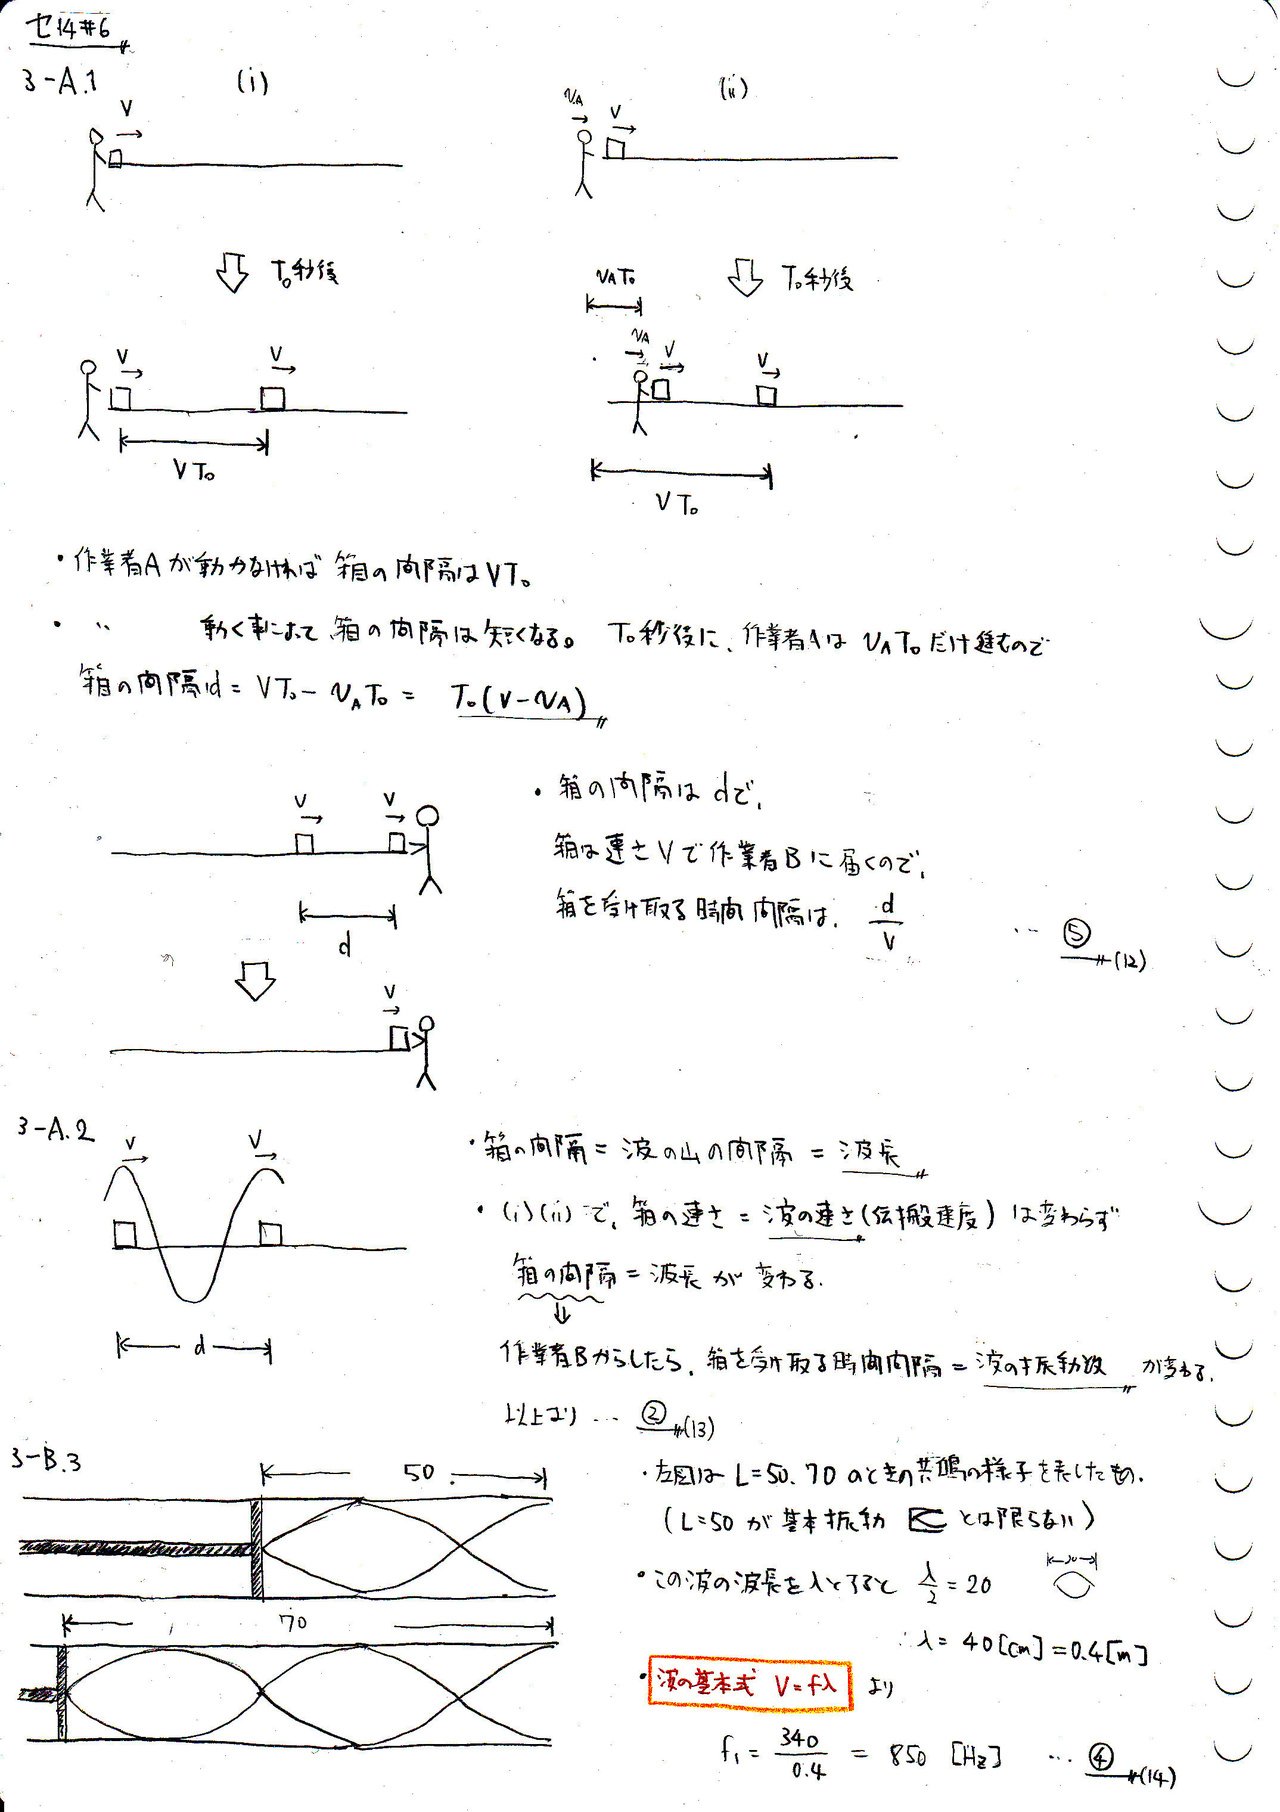 セ14#6
3-A.1 (i) (ii)
V
vA V
T₀秒後
vAT₀ T₀秒後
V V
vA V V
VT₀
VT₀
・作業者Aが動かなければ 箱の間隔はVT₀
・ 〃 動く事によって 箱の間隔は短くなる。 T₀秒後に、作業者Aは vAT₀だけ進むので
箱の間隔d = VT₀ - vAT₀ = T₀(V-vA)
V V
・箱の間隔は dで、
箱は速さVで作業者Bに届くので、
箱を受け取る時間間隔は、 d/V … ⑤ (12)
d
V
3-A.2
V V
・箱の間隔 = 波の山の間隔 = 波長
・(i)(ii)で、箱の速さ = 波の速さ(伝搬速度) は変わらず
箱の間隔 = 波長 が 変わる.
d
作業者Bからしたら、箱を受け取る時間間隔 = 波の振動数 が変わる.
以上より … ② (13)
3-B.3
50
・左図は L=50、70 のときの共鳴の様子を表したもの.
(L=50が基本振動 とは限らない)
・この波の波長をλとすると λ/2 = 20
20
70
∴ λ = 40[cm] = 0.4[m]
・波の基本式 V=fλ より
f₁ = 340/0.4 = 850 [Hz] … ④ (14)